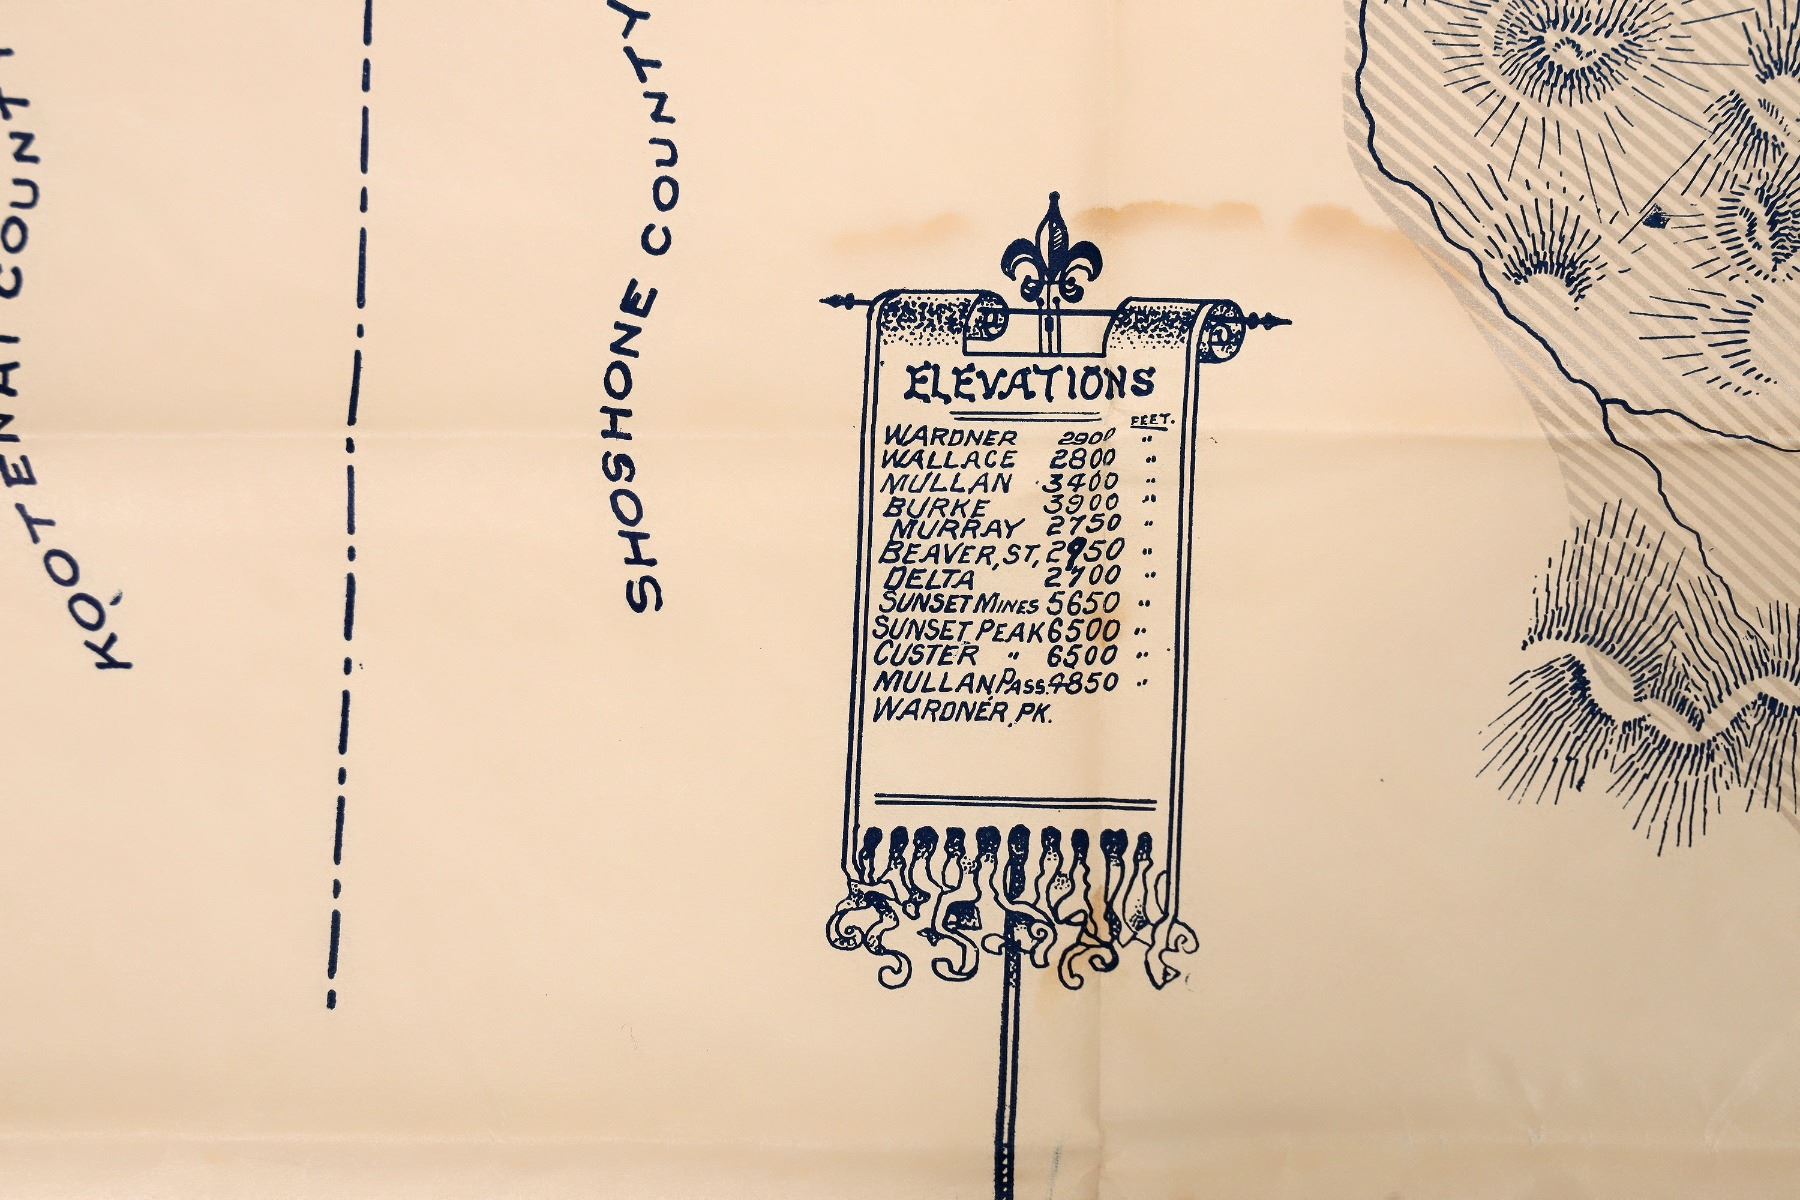 KOOTENAI COUNTY
SHOSHONE COUNTY
ELEVATIONS
FEET.
WARDNER 2900 "
WALLACE 2800 "
MULLAN 3400 "
BURKE 3900 "
MURRAY 2750 "
BEAVER, ST, 2950 "
DELTA 2700 "
SUNSET MINES 5650 "
SUNSET PEAK 6500 "
CUSTER " 6500 "
MULLAN, PASS. 4850 "
WARDNER, PK.